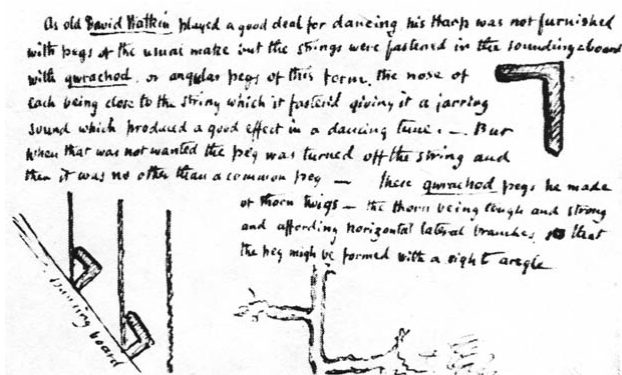 As old David Watkin played a good deal for dancing his Harp was not furnished
with pegs of the usual make but the strings were fastend in the sounding board
with gwrachod, or angular pegs of this form, the nose of
each being close to the string which it fastend giving it a jarring
sound which produced a good effect in a dancing tune. — But
when that was not wanted the peg was turned off the string and
then it was no other than a common peg — these gwrachod pegs he made
of thorn twigs — the thorn being tough and strong
and affording horizontal lateral branches so that
the peg might be formed with a right angle
board